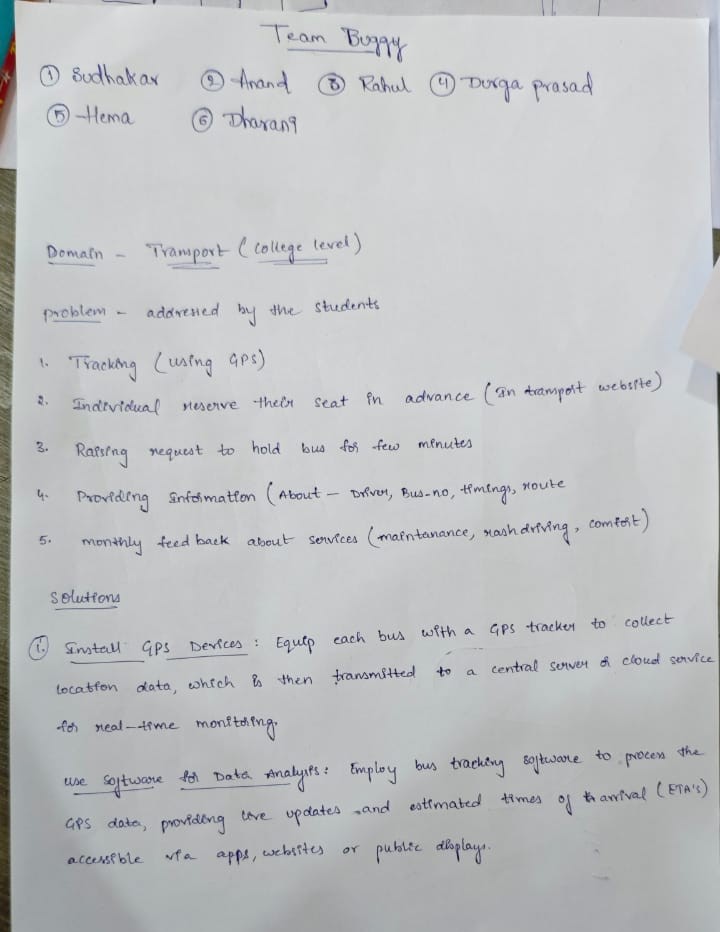 Team Buggy
① Sudhakar ② Anand ③ Rahul ④ Durga prasad
⑤ Hema ⑥ Dharani
Domain - Transport (college level)
problem - addressed by the students
1. Tracking (using GPS)
2. Individual reserve their seat in advance (In transport website)
3. Raising request to hold bus for few minutes
4. Providing Information (About - Driver, Bus-no, timings, route
5. monthly feed back about services (maintanance, rash driving, comfort)
Solutions
① Install GPS Devices : Equip each bus with a GPS tracker to collect
location data, which is then transmitted to a central server or cloud service
for real-time monitoring.
use software for Data Analysis : Employ bus tracking software to process the
GPS data, providing live updates and estimated times of arrival (ETA's)
accessible via apps, websites or public displays.